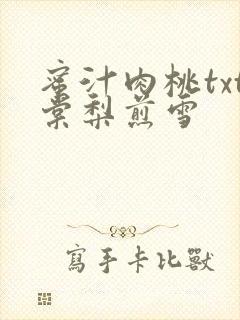 蜜汁肉桃txt
棠梨煎雪
寫手卡比獸